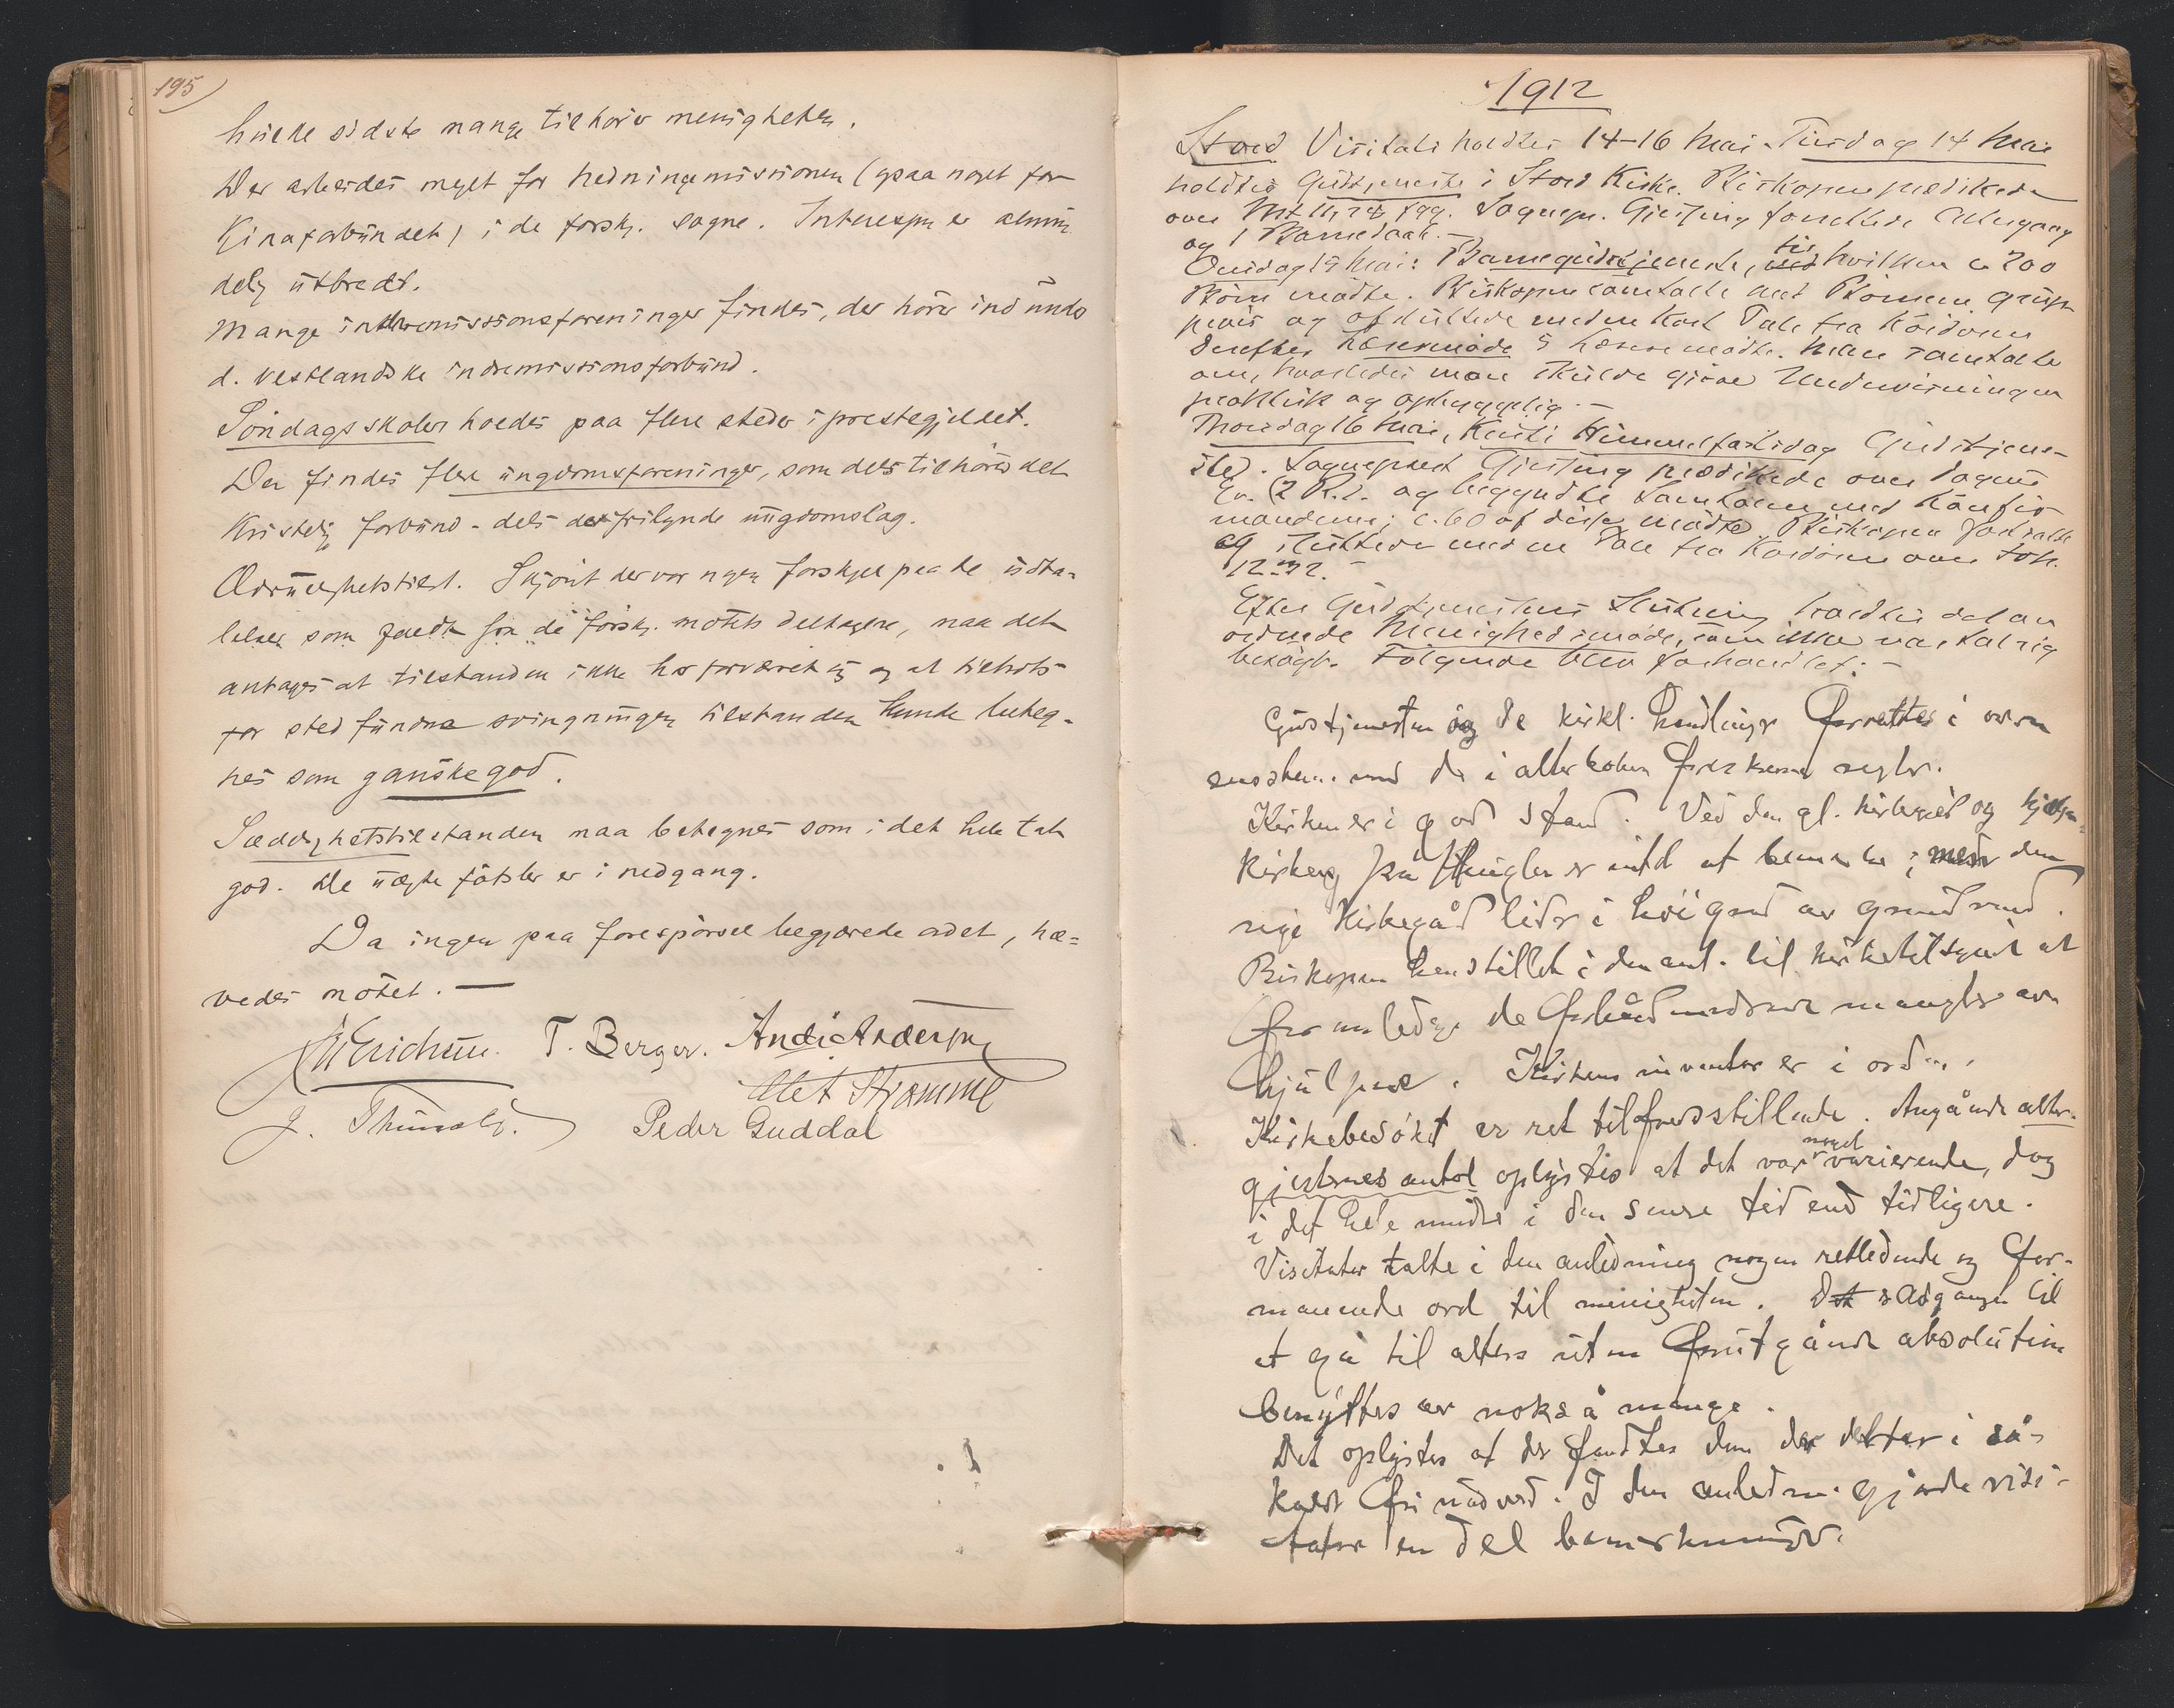 195
hvilke sidste mange tilhører menigheten.
Der arbeides meget for hedningemissionen (ogsaa noget for
Kinaforbundet) i de forskj. sogne. Interessen er almin
delig utbredt.
Mange indremissionsforeninger findes, der hører ind under
d. vestlandske indremissionsforbund.
Søndagsskoler holdes paa flere steder i prestegjeldet.
Der findes flere ungdomsforeninger, som dels tilhører det
Kristelig forbund - dels det frilynde ungdomslag.
Ædruelighetstilst. Skjønt der var nogen forskjel paa de udta-
lelser som faldt fra de forskj. møtets deltagere, maa det
antages at tilstanden ikke har forværret sig og at tiltrods
for sted fundne svingninger tilstanden kunde beteg-
nes som ganske god.
Sædelighetstilstanden maa betegnes som i det hele tat
god. De uægte fødsler er i nedgang.
Da ingen paa forespørsel begjærede ordet, hæ-
vedes møtet. —
Erichsen. T. Berger. Andr. Andersen
Olet Stramme
J. Peder Guddal
1912
Stord Visitats holdtes 14-16 Mai. Tirsdag 14 Mai
holdtes Gudstjeneste i Stord Kirke. Biskopen prædikede
over Mt 11, 28 fgg. Sognepr. Gjersing forrettede Altergang
og 1 Barnedaab. —
Onsdag 15 Mai: Barnegudstjeneste, ved til hvilken c 200
Børn mødte. Biskopen samtalte med Børnene grup-
pevis og afsluttede med en kort Tale fra Kordøren
Derefter Lærermøde 5 Lærere mødte. Man samtalte
om, hvorledes man skulde gjøre Undervisningen
praktisk og opbyggelig. —
Thorsdag 16 Mai, Kristi Himmelfartsdag Gudstjene-
ste. Sogneprest Gjersing prædikede over Dagens
Ev. (2 R.) og begyndte Samtalen med Konfir-
manderne; c. 60 af disse mødte. Biskopen fortsatte
og sluttede med en Tale fra Kordøren over Joh.
12.32.
Efter Gudstjenestens Slutning holdtes det an
ordnede Menighedsmøde, som ikke var talrig
besøgt. Følgende blev forhandlet: —
Gudstjenesten og de kirkl. handlinger forrettes i overn
ensstem. med de i alterboken foreskrevne regler.
Kirken er i god stand. Ved den gl. kirkegård og hjælpe-
kirkeg på Huglen er intet at bemærke; men den
nye kirkegård lider i høi grad av grundvand.
Biskopen henstillet i den anl. til kirketilsynet at
foranledige de forhåndenværende mangler av-
hjulpne. Kirkens inventar er i orden.
Kirkebesøket er ret tilfredsstillende. Angående alter-
gjesternes antal oplystes at det var noget varierende, dog
i det hele mindre i den senere tid end tidligere.
Visitator talte i den anledning nogen retledende og for-
manende ord til menigheten. Det Adgangen til
at gå til alters uten forutgående absolution
benyttes av nokså mange.
Det oplystes at der fandtes dem der deltar i så-
kaldt fri nadverd. I den anledn. gjorde visi-
tator en del bemerkninger.